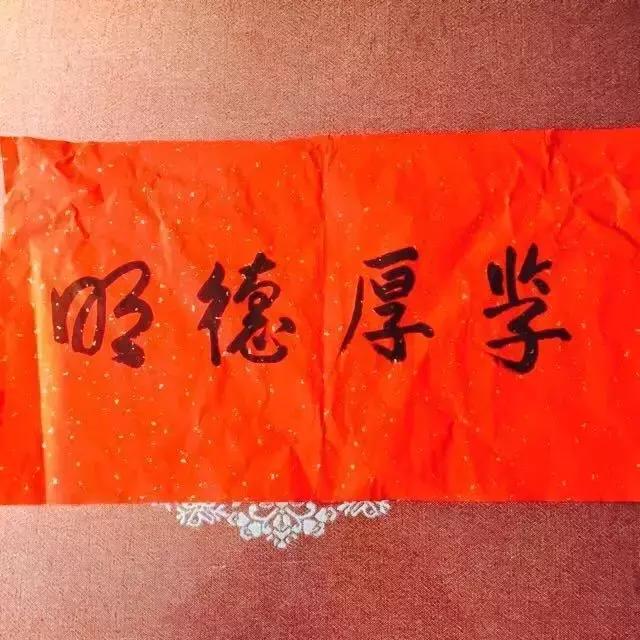 明德厚学